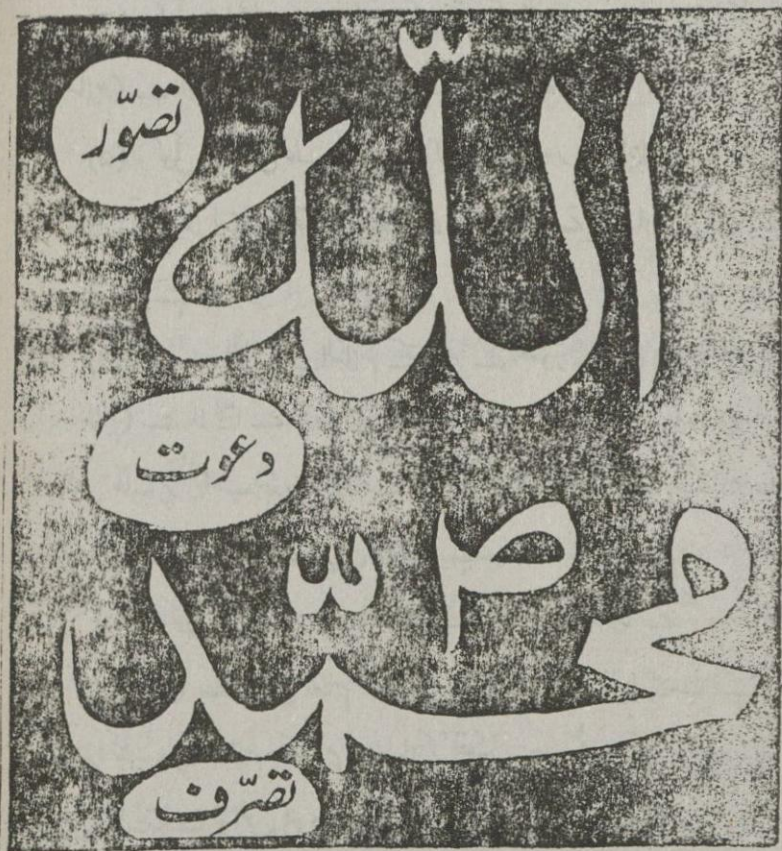 تصوّر
اللّٰه
دعوت
محمّد ؐ
تصرّف